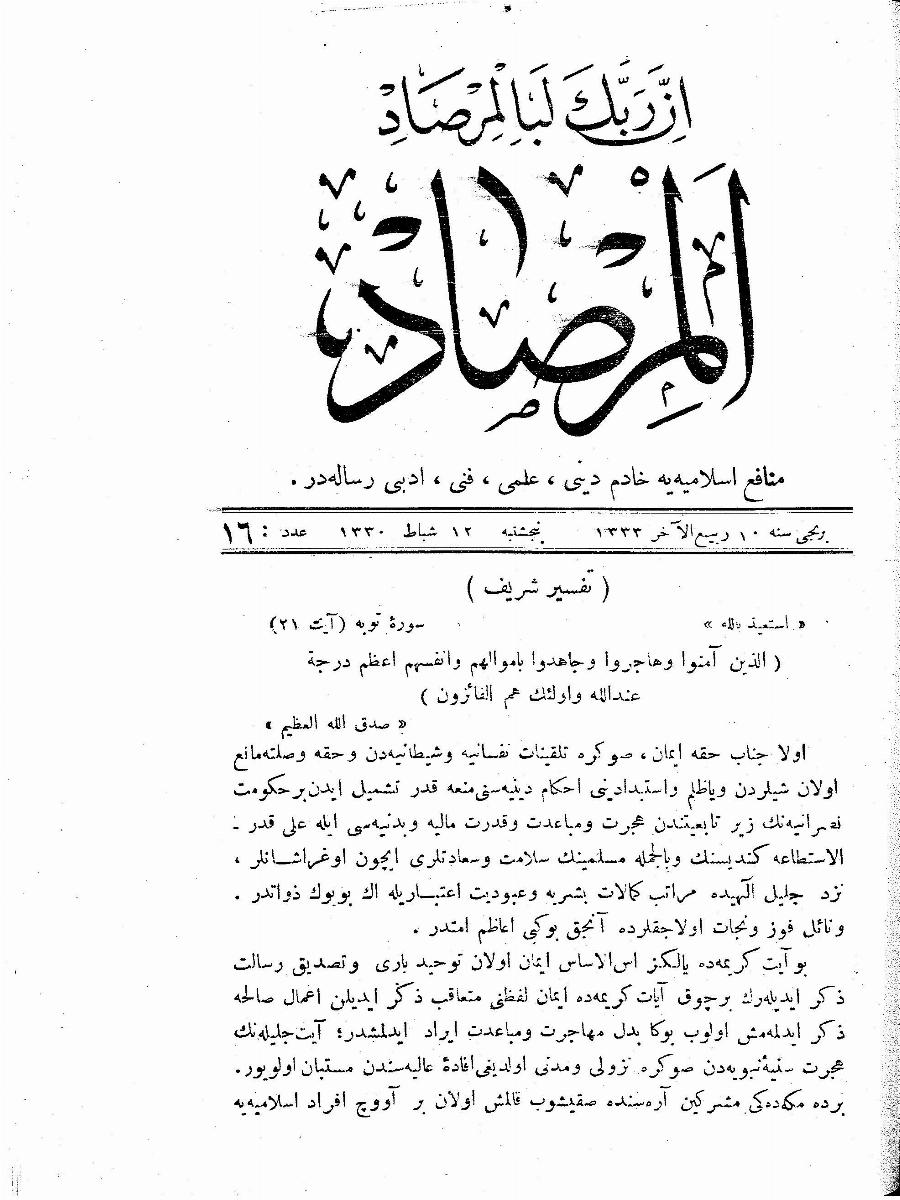 اِنَّ رَبَّكَ لَبِالْمِرْصَادِ
اَلْمِرْصَاد
منافع اسلاميه‌يه خادم دينى ، علمى ، فنى ، ادبى رساله‌در .
برنجى سنه ١٠ ربيع الآخر ١٣٣٣ پنجشنبه ١٢ شباط ١٣٣٠ عدد : ١٦
( تفسير شريف )
« استعيذ بالله » سورۀ توبه (آيت ٢١)
( الذين آمنوا وهاجروا وجاهدوا باموالهم وانفسهم اعظم درجة
عندالله واولئك هم الفائزون )
« صدق الله العظيم »
اولا جناب حقه ايمان ، صوكره تلقينات نفسانيه وشيطانيه‌دن وحقه وصلته مانع
اولان شيلردن وياظلم واستبدادينى احكام دينيه‌سنى منعه قدر تشميل ايدن بر حكومت
نصرانيه‌نك زير تابعيتندن هجرت ومباعدت وقدرت ماليه وبدنيه‌سى ايله على قدر ـ
الاستطاعه كنديسنك وبالجمله مسلمينك سلامت وسعادتلرى ايچون اوغراشــانلر ،
نزد جليل الٓهيده مراتب كمالات بشريه وعبوديت اعتبــاريله اك بويوك ذواتدر .
ونائل فوز ونجات اولاجقلرده آنجق بوكبى اعاظم امتدر .
بو آيت كريمه‌ده يالكز اس الاساس ايمان اولان توحيد بارى وتصديق رسالت
ذكر ايديله‌رك برچوق آيات كريمه‌ده ايمان لفظنى متعاقب ذكر ايديلن اعمال صالحه
ذكر ايدلمه‌مش اولوب بوكا بدل مهاجرت ومباعدت ايراد ايدلمشدر؛ آيت جليله‌نك
هجرت سنيۀ نبويه‌دن صوكره نزولى ومدنى اولديغى افادۀ عاليه‌سندن مستبان اولويور.
برده مكه‌ده‌كى مشركين آره‌سنده صقيشوب قالمش اولان بر آووچ افراد اسلاميه‌يه